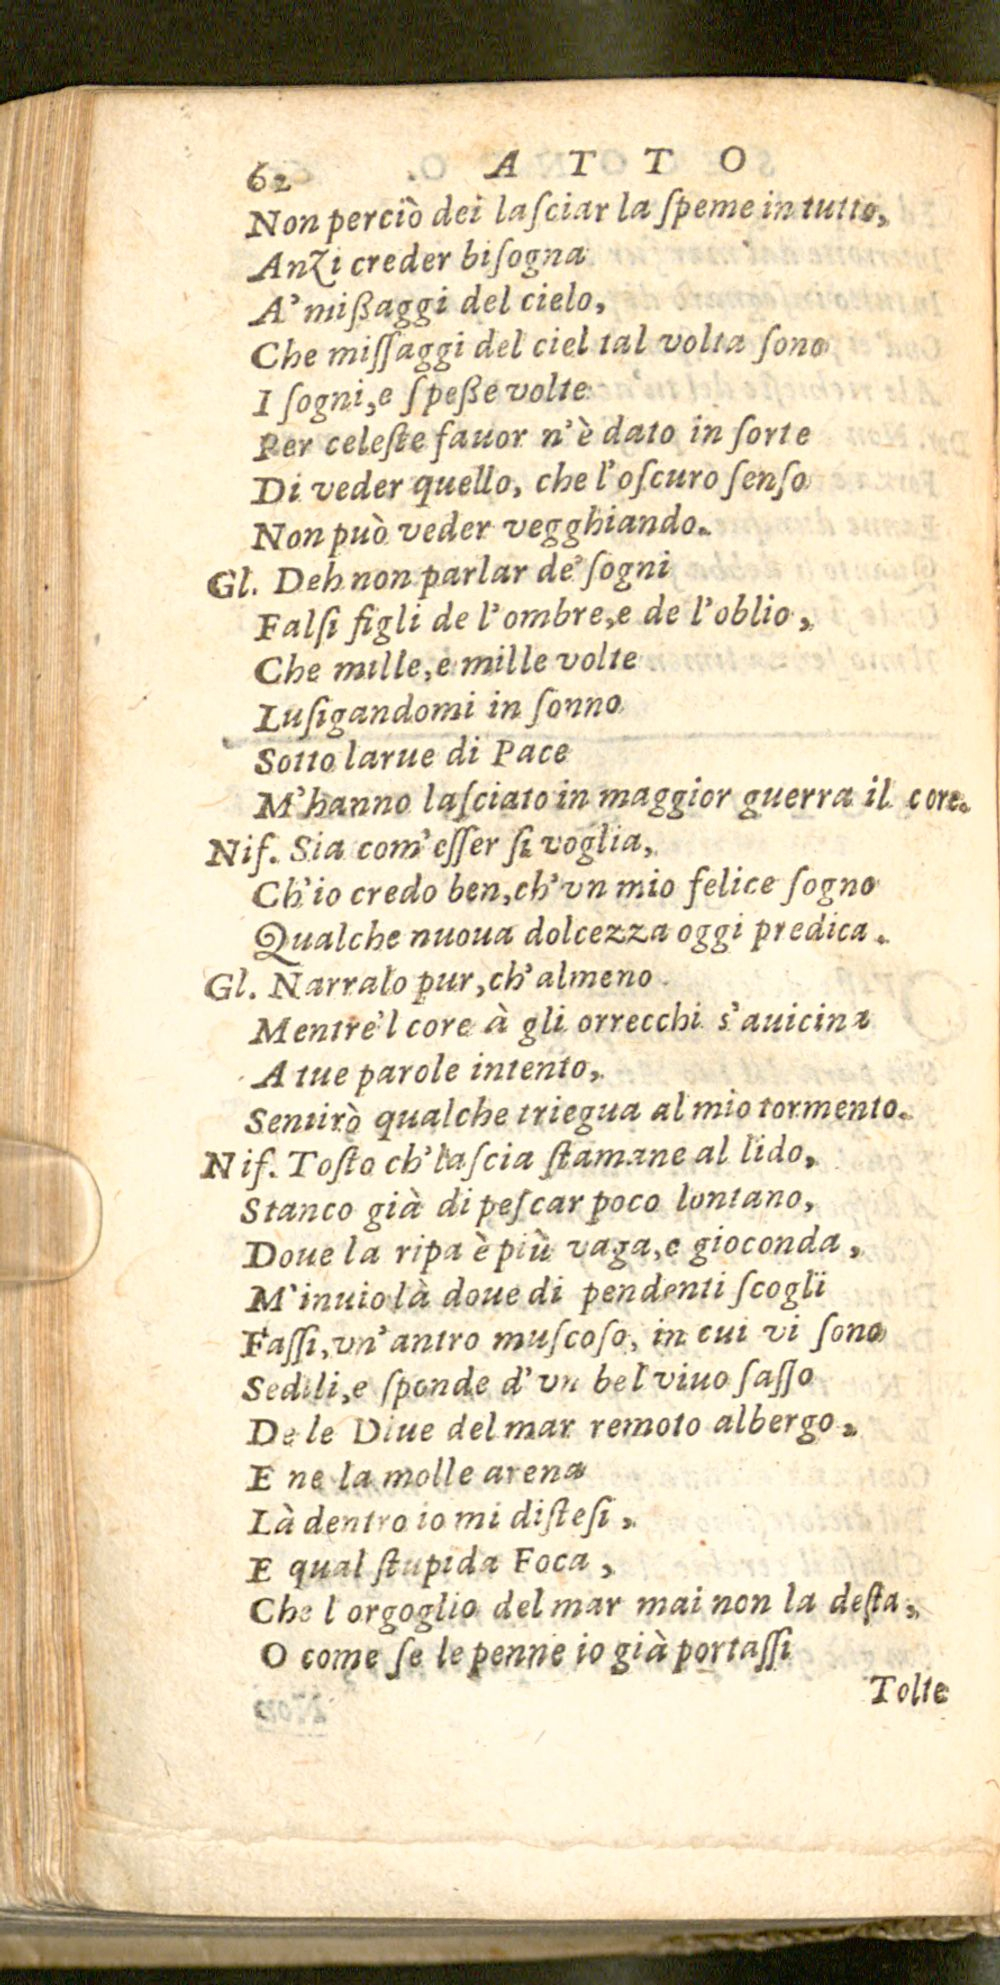 62 ATTO
Non perciò dei laſciar la ſpeme in tutto,
Anzi creder biſogna
A' mißaggi del cielo,
Che miſſaggi del ciel tal volta ſono
I ſogni, e ſpeße volte
Per celeſte fauor n'è dato in ſorte
Di veder quello, che l'oſcuro ſenſo
Non può veder vegghiando.
Gl. Deh non parlar de' ſogni
Falſi figli de l'ombre, e de l'oblio,
Che mille, e mille volte
Luſigandomi in ſonno
Sotto larue di Pace
M'hanno laſciato in maggior guerra il core.
Niſ. Sia com' eſſer ſi voglia,
Ch'io credo ben, ch'vn mio felice ſogno
Qualche nuoua dolcezza oggi predica.
Gl. Narralo pur, ch'almeno
Mentre'l core à gli orrecchi s'auicina
A tue parole intento,
Sentirò qualche triegua al mio tormento.
Niſ. Toſto ch'laſcia ſtamane al lido,
Stanco già di peſcar poco lontano,
Doue la ripa è più vaga, e gioconda,
M'inuio là doue di pendenti ſcogli
Faſſi, vn'antro muſcoſo, in cui vi ſono
Sedili, e ſponde d'vn bel viuo ſaſſo
De le Diue del mar remoto albergo,
E ne la molle arena
Là dentro io mi diſteſi,
E qual ſtupida Foca,
Che l orgoglio del mar mai non la deſta,
O come ſe le penne io già portaſſi
Tolte